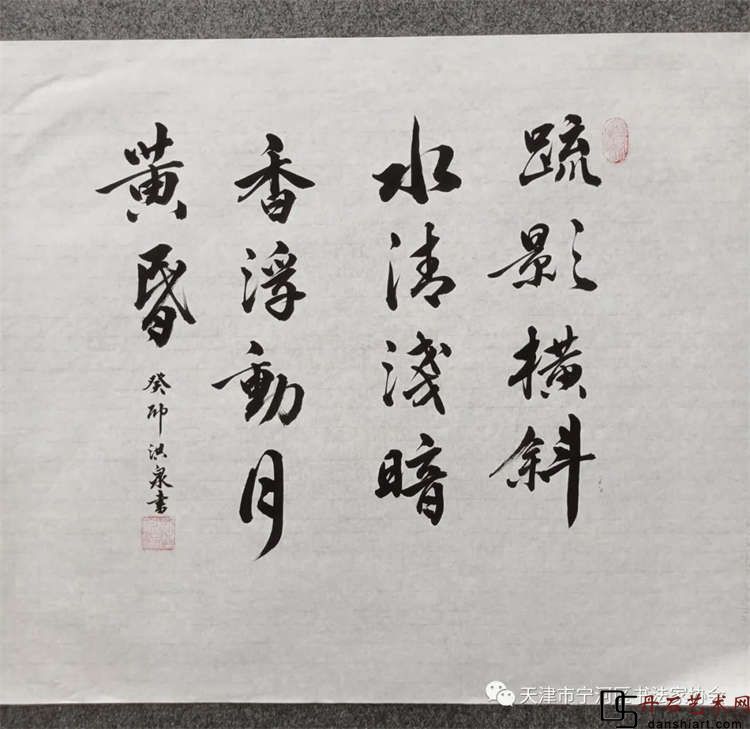 疏影橫斜
水清淺暗
香浮動月
黃昏
癸卯洪泉書
天津市宁河区书法家协会
丹石艺术网
danshiart.com